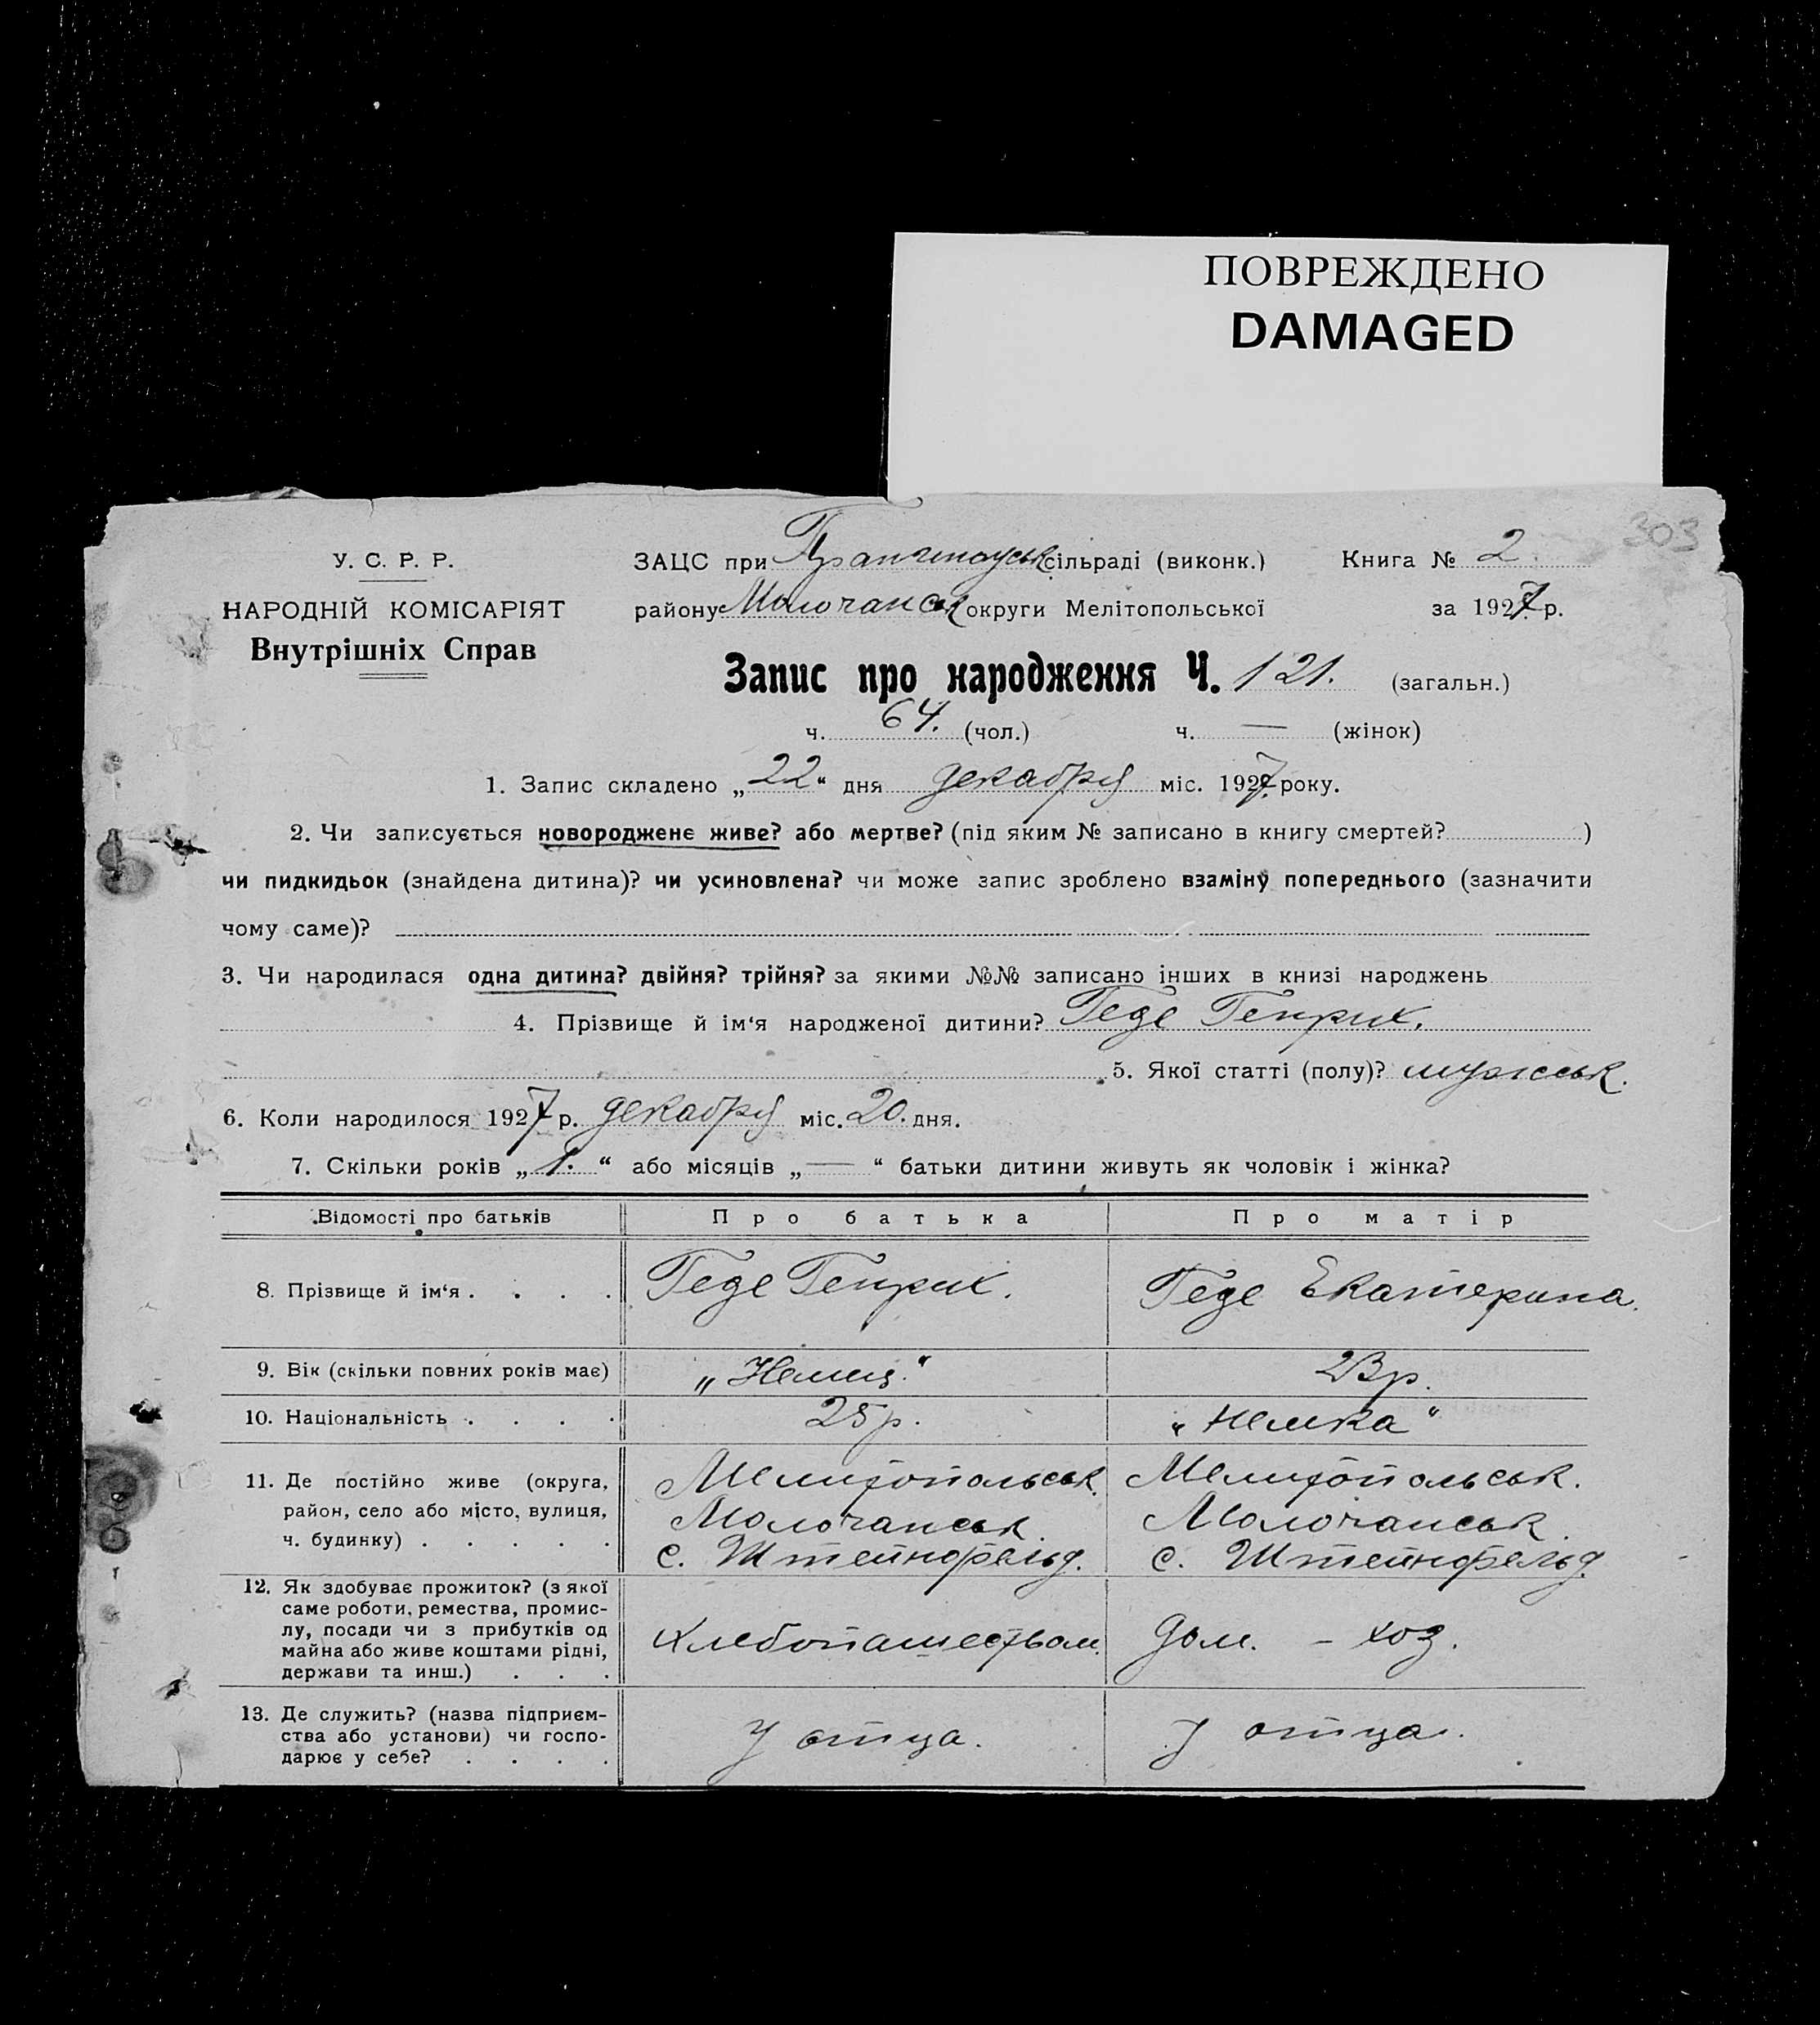 ПОВРЕЖДЕНО
DAMAGED
303
У. С. Р. Р.
НАРОДНІЙ КОМІСАРІЯТ
Внутрішніх Справ
ЗАЦС при сільраді (виконк.) Книга № 2
району Молочанськ округи Мелітопольської за 1927 р.
Запис про народження Ч. 121. (загальн.)
ч. 64. (чол.) ч. — (жінок)
1. Запис складено „22“ дня декабря міс. 1927 року.
2. Чи записується новороджене живе? або мертве? (під яким № записано в книгу смертей? )
чи пидкидьок (знайдена дитина)? чи усиновлена? чи може запис зроблено взаміну попереднього (зазначити
чому саме)?
3. Чи народилася одна дитина? двійня? трійня? за якими №№ записано інших в книзі народжень
4. Прізвище й ім‘я народженої дитини? Геде Генрих.
5. Якої статті (полу)? мужськ.
6. Коли народилося 1927 р. декабря міс. 20. дня.
7. Скільки років „1.“ або місяців „—“ батьки дитини живуть як чоловік і жінка?
Відомості про батьків Про батька Про матір
8. Прізвище й ім‘я . . . . Геде Генрих. Геде Екатерина.
9. Вік (скільки повних років має) „Немец.“ 23 р.
10. Національність . . . . 25 р. „немка“
11. Де постійно живе (округа, Мелитопольськ. Мелитопольськ.
район, село або місто, вулиця, Молочанськ. Молочанськ.
ч. будинку) . . . . . с. Штейнфельд. с. Штейнфельд.
12. Як здобуває прожиток? (з якої
саме роботи, ремества, промис-
лу, посади чи з прибутків од хлебопашеством. дом. – хоз.
майна або живе коштами рідні,
держави та инш.) . . .
13. Де служить? (назва підприєм-
ства або установи) чи госпо- у отца. у отца.
дарює у себе? . . . .